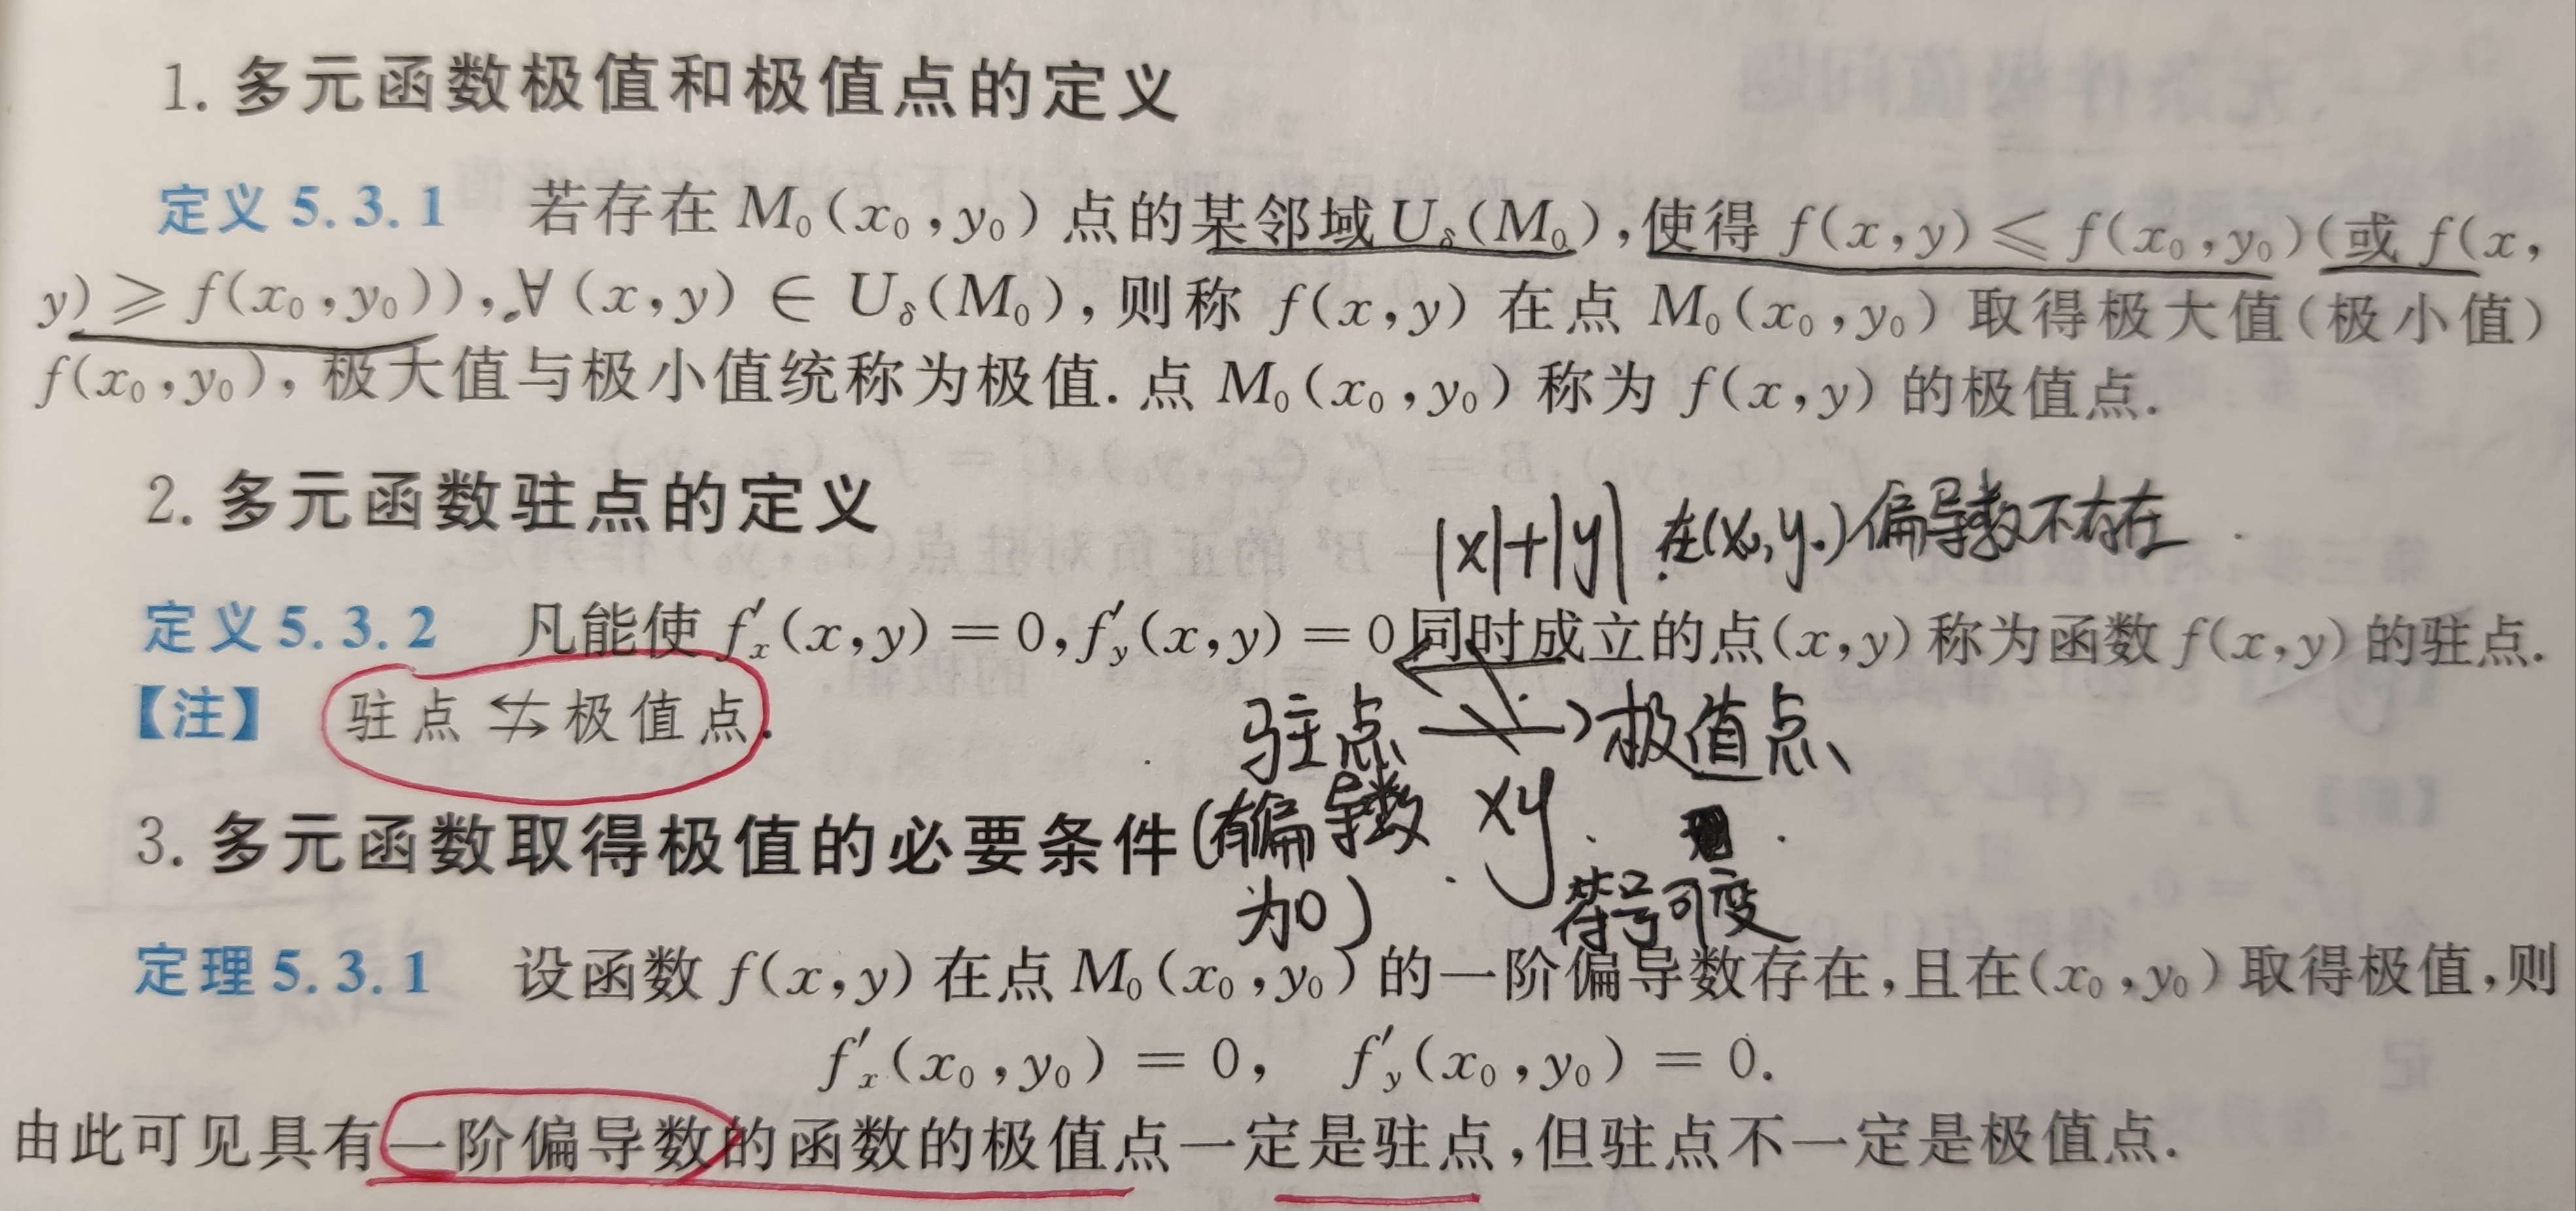 1. 多元函数极值和极值点的定义
定义 5.3.1 若存在 M₀(x₀,y₀) 点的某邻域 U_δ(M₀),使得 f(x,y)≤f(x₀,y₀)(或 f(x,
y)≥f(x₀,y₀)),∀(x,y)∈U_δ(M₀),则称 f(x,y) 在点 M₀(x₀,y₀) 取得极大值(极小值)
f(x₀,y₀),极大值与极小值统称为极值.点 M₀(x₀,y₀) 称为 f(x,y) 的极值点.
2. 多元函数驻点的定义
|x|+|y| 在(x₀,y₀)偏导数不存在
定义 5.3.2 凡能使 f′ₓ(x,y)=0,f′_y(x,y)=0同时成立的点(x,y)称为函数 f(x,y) 的驻点.
【注】 驻点⇆̸极值点.
驻点 ⇆̸ 极值点
3. 多元函数取得极值的必要条件
(有偏导数
为0)
xy
符号可变
定理 5.3.1 设函数 f(x,y) 在点 M₀(x₀,y₀) 的一阶偏导数存在,且在(x₀,y₀) 取得极值,则
f′ₓ(x₀,y₀)=0, f′_y(x₀,y₀)=0.
由此可见具有一阶偏导数的函数的极值点一定是驻点,但驻点不一定是极值点.